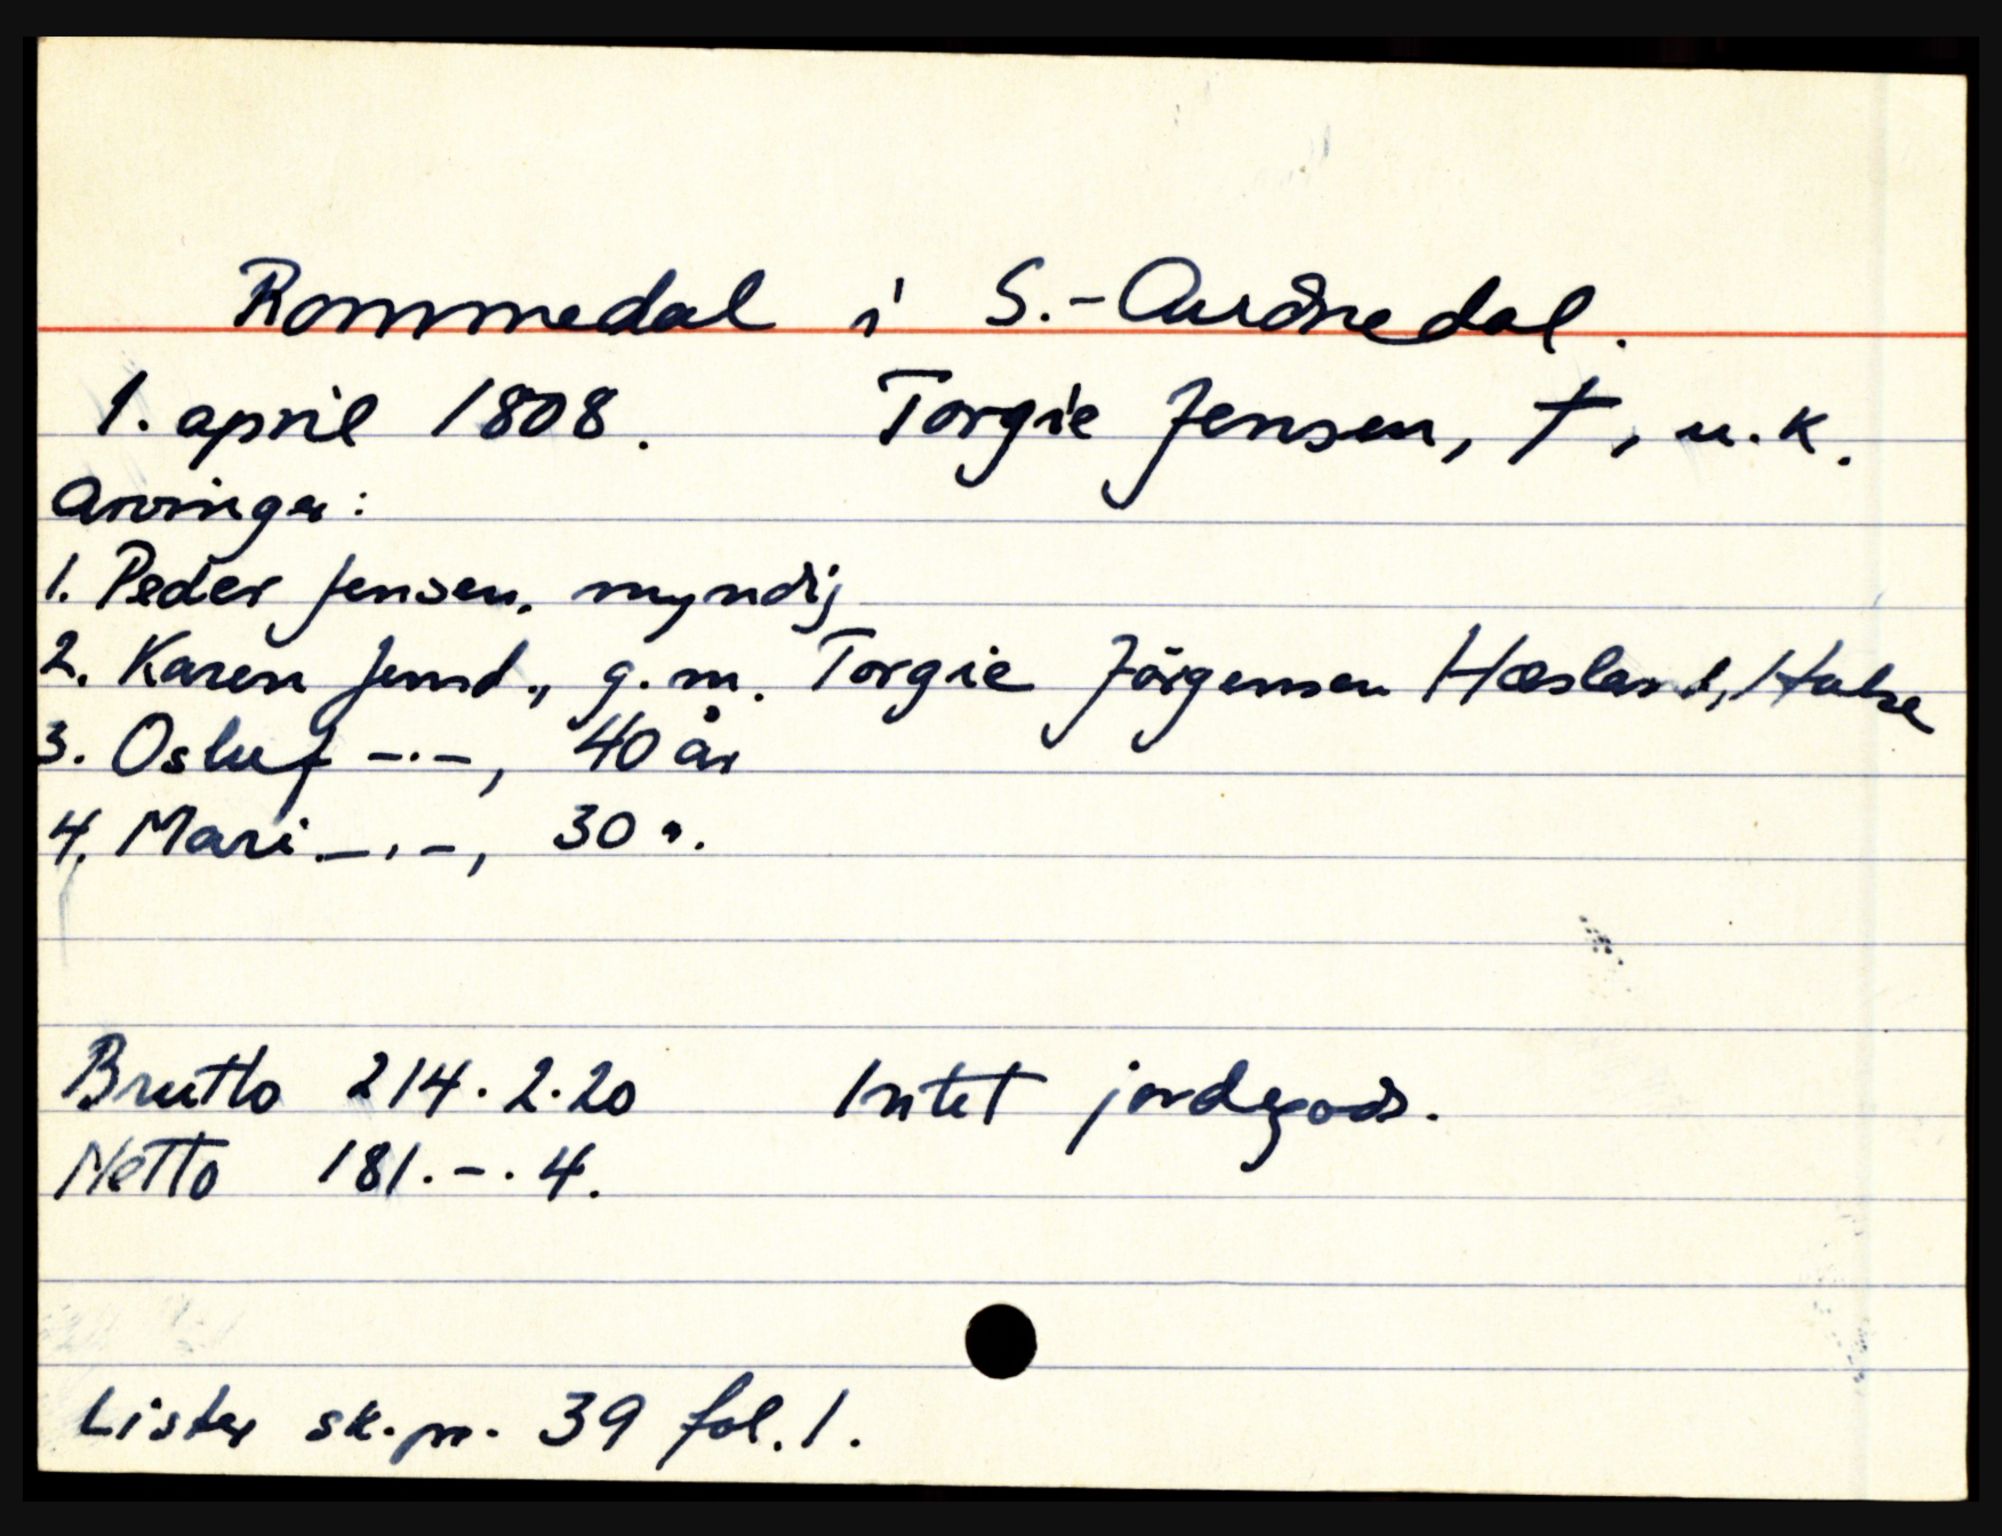 Rommedal i S.-Audnedal.
1. april 1808. Torgie Jensen, †, u.k.
Arvinger:
1. Peder Jensen, myndig
2. Karen Jensd., g.m. Torgie Jörgensen Hæsland, Halse
3. Osluf -.-, 40 år
4. Mari -.-, 30 ".
Brutto 214.2.20 Intet jordegods.
Netto 181.-.4.
Lister sk.pr. 39 fol. 1.